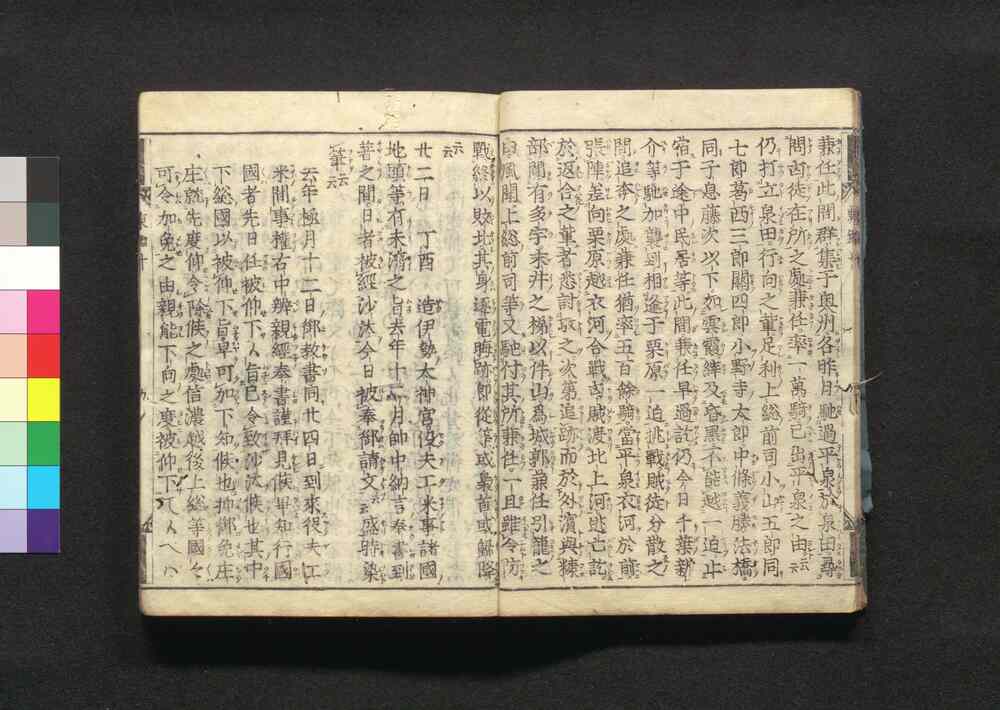 兼任此間群集于奥州各昨日馳過平泉於泉田尋
問凶徒在所之處兼任率一萬騎已出平泉之由云云
仍打立泉田行向之輩足利上総前司小山五郎同
七郎葛西三郎關四郎小野寺太郎中條義勝法橋
同子息藤次以下如雲霞縡及昏黑不能越一迫止
宿于途中民居等此間兼任早過訖仍今日千葉新
介等馳加襲到相逢于栗原一迫挑戰賊徒分散之
間追奔之處兼任猶率五百餘騎當平泉衣河於前
張陣差向栗原越衣河合戰凶賊渡北上河逃亡訖
於返合之輩者悉討取之次第追跡而於外濱與糠
部間有多宇末井之梯以件山爲城郭兼任引籠之
由風聞上総前司等又馳付其所兼任一且雖令防
戰終以敗北其身逐電晦跡郎從等或梟首或歸降
云云
廿二日 丁酉 造伊勢太神宮役夫工米事諸國
地頭等有未濟之旨去年十二月帥中納言奉書到
著之間日者被經沙汰今日被奉御請文云云盛時染
筆云云
去年極月十二日御教書同廿四日到來役夫工
米間事權右中辨親經奉書謹拜見候畢知行國
國者先日任被仰下候旨已令致沙汰候也其中
下総國以被仰下旨早可加下知候也抑御免庄
庄就先度仰令除候之處信濃越後上総等國々
可令加免之由親能下向之度被仰下